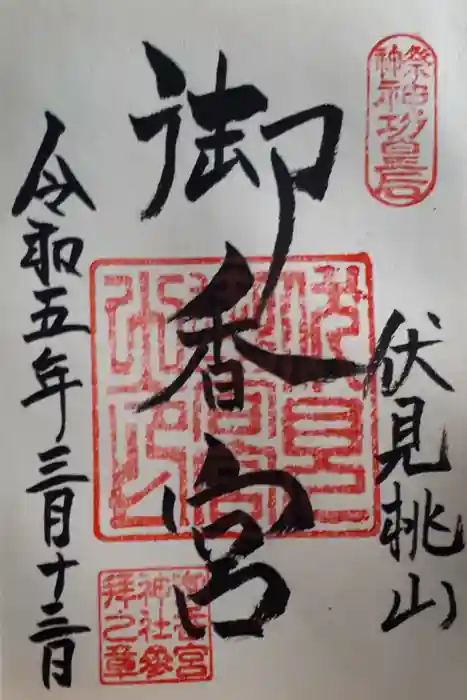 祭神
神功皇后
伏見桃山
御香宮
御香宮
神社参
拝之章
令和五年三月十三日